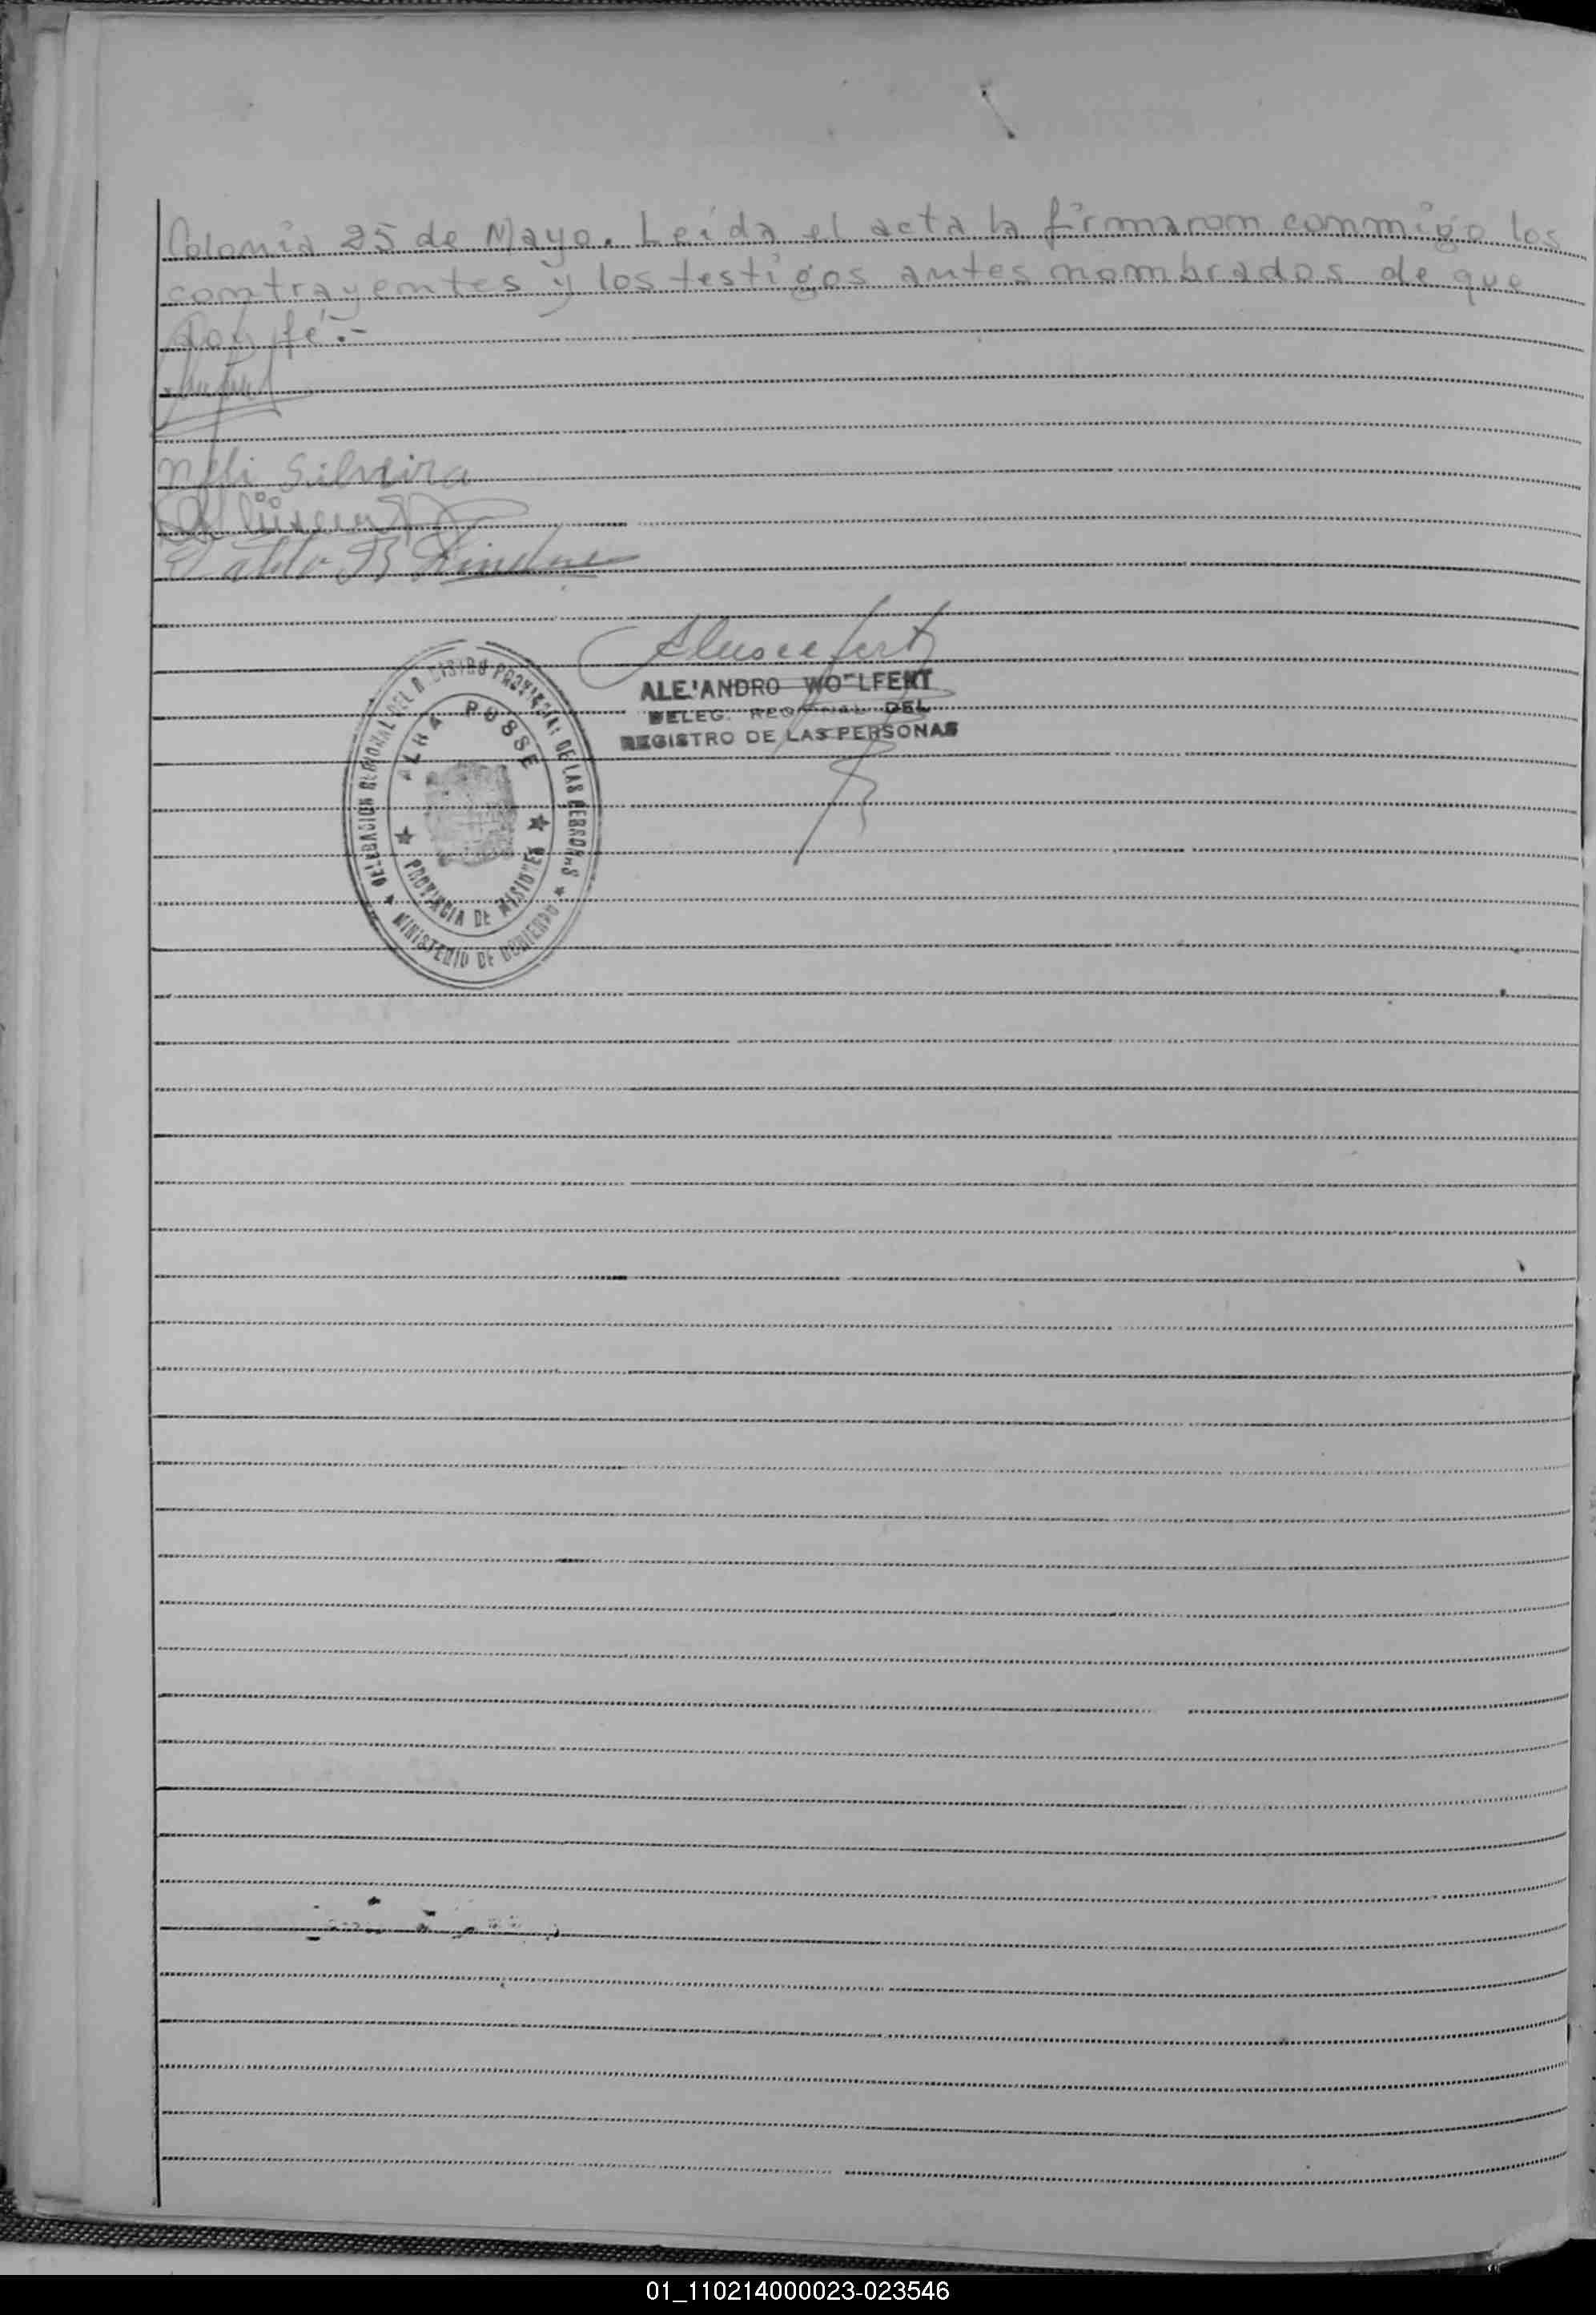 Colonia 25 de Mayo. Leída el acta la firmarom commigo los
comtrayemtes y los testigos amtes mombrados de que
doy fé.-
Neli Silveira
Pablo B
ALEJANDRO WOLFERT
DELEG. REGIONAL DEL
REGISTRO DE LAS PERSONAS
DELEGACION REGIONAL DEL REGISTRO PROVINCIAL DE LAS PERSONAS
ALBA POSSE
PROVINCIA DE MISIONES
MINISTERIO DE GOBIERNO
01_110214000023-023546